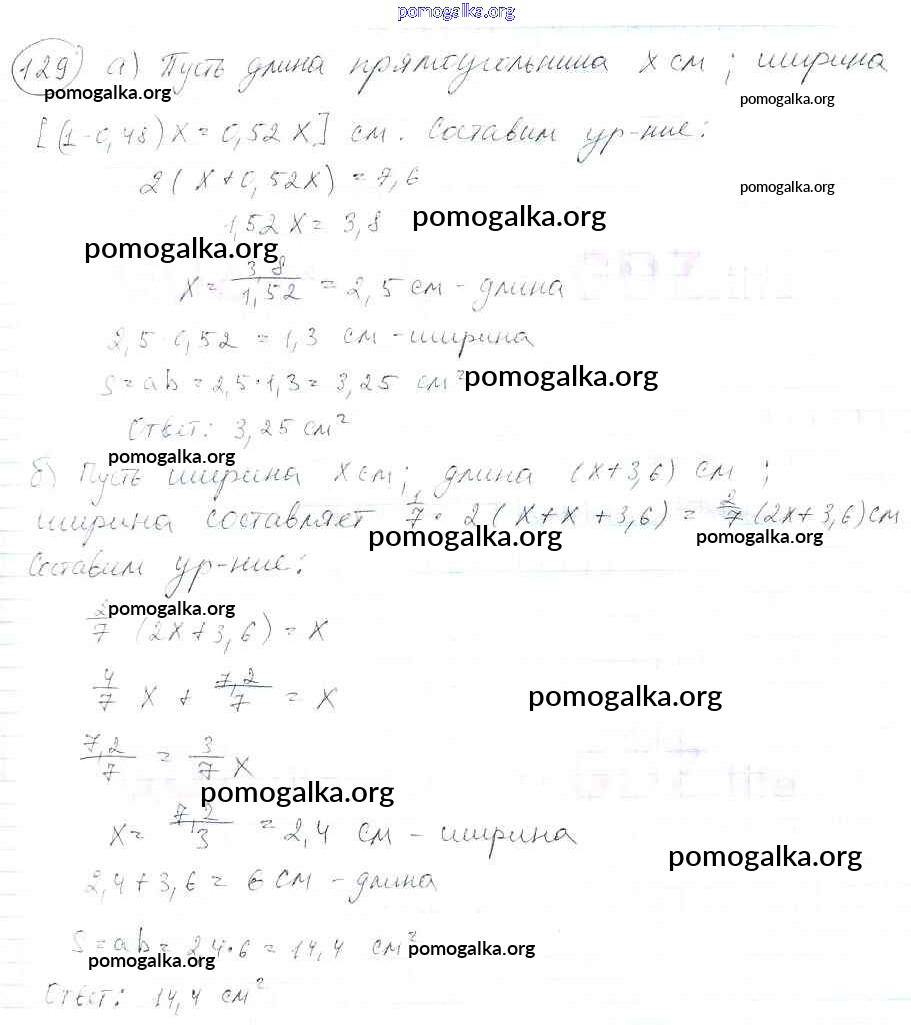 pomogalka.org
129 а) Пусть длина прямоугольника x см; ширина
pomogalka.org pomogalka.org
[(1-0,48)x=0,52x] см. Составим ур-ние:
2(x+0,52x)=7,6
pomogalka.org
1,52x=3,8 pomogalka.org
pomogalka.org
x= 3,8/1,52 = 2,5 см - длина
2,5·0,52=1,3 см - ширина
S=ab=2,5·1,3=3,25 см² pomogalka.org
Ответ: 3,25 см²
pomogalka.org
б) Пусть ширина x см; длина (x+3,6) см;
ширина составляет 1/7·2(x+x+3,6)=2/7(2x+3,6)см
pomogalka.org pomogalka.org
Составим ур-ние:
pomogalka.org
2/7(2x+3,6)=x
4/7 x + 7,2/7 = x
pomogalka.org
7,2/7 = 3/7 x
pomogalka.org
x= 7,2/3 = 2,4 см - ширина
pomogalka.org
2,4+3,6=6 см - длина
S=ab=2,4·6=14,4 см²
pomogalka.org pomogalka.org
Ответ: 14,4 см²